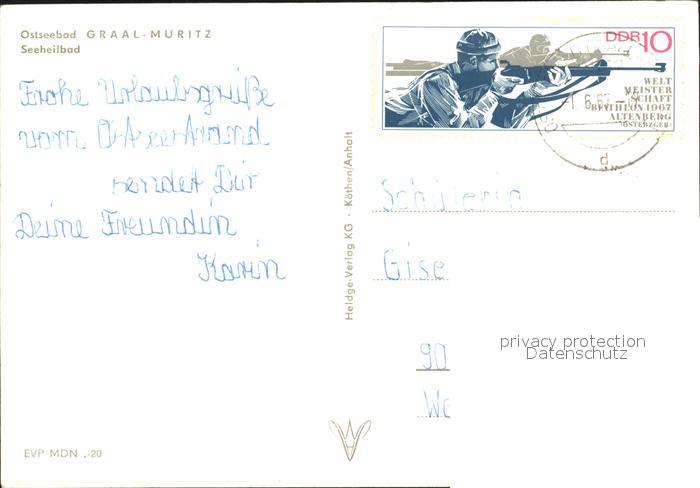 Ostseebad GRAAL-MÜRITZ
Seeheilbad
Frohe Urlaubsgrüße
vom Ostseestrand
sendet Dir
Deine Freundin
Karin
EVP MDN ,-20
Heldge-Verlag KG · Köthen/Anhalt
DDR 10
WELT
MEISTER
SCHAFT
BIATHLON 1967
ALTENBERG
(OSTERZGEB.)
d
Schülerin
Gise
90
We
privacy protection
Datenschutz